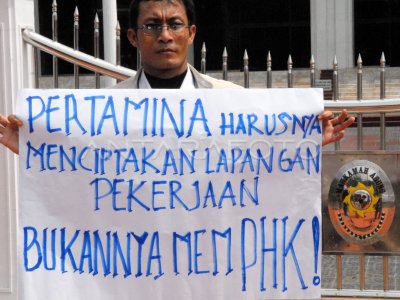 PERTAMINA HARUSNYA
MENCIPTAKAN LAPANGAN
PEKERJAAN
BUKANNYA MEM PHK!
MAHKAMAH AGUNG
ANTARAFOTO